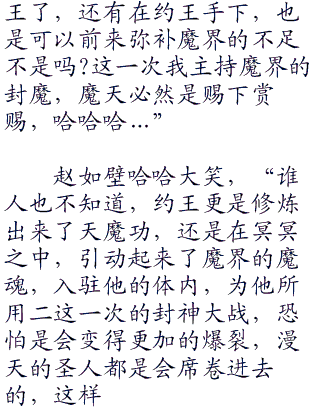 王了，还有在约王手下，也
是可以前来弥补魔界的不足
不是吗?这一次我主持魔界的
封魔，魔天必然是赐下赏
赐，哈哈哈…”
赵如壁哈哈大笑，“谁
人也不知道，约王更是修炼
出来了天魔功，还是在冥冥
之中，引动起来了魔界的魔
魂，入驻他的体内，为他所
用二这一次的封神大战，恐
怕是会变得更加的爆裂，漫
天的圣人都是会席卷进去
的，这样